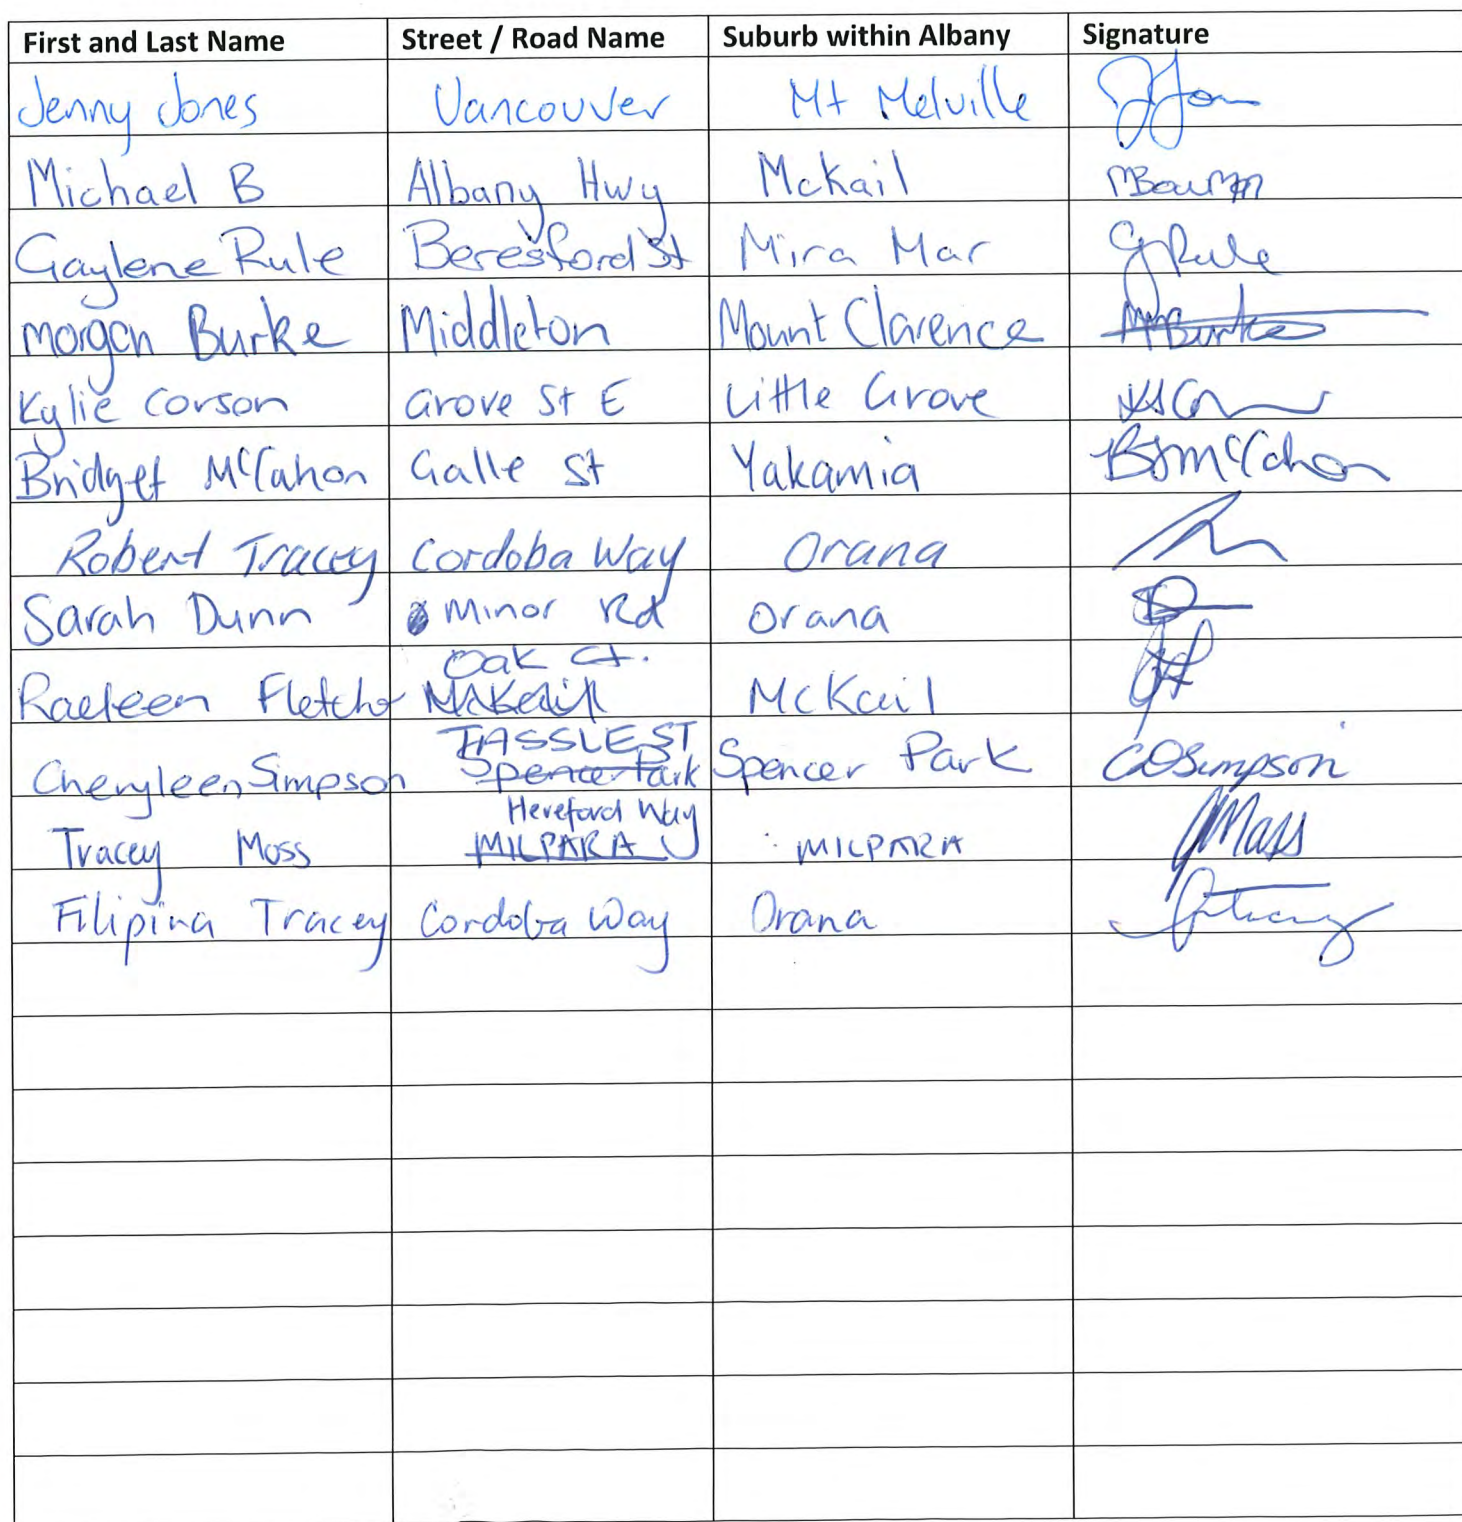 First and Last Name Street / Road Name Suburb within Albany Signature
Jenny Jones Vancouver Mt Melville
Michael B Albany Hwy McKail
Gaylene Rule Beresford St Mira Mar GRule
Morgan Burke Middleton Mount Clarence MBurke
Kylie Corson Grove St E Little Grove
Bridget McCahon Galle St Yakamia BJMcCahon
Robert Tracey Cordoba Way Orana
Sarah Dunn Minor Rd Orana
Oak Ct.
Raeleen Fletcher McKail McKail
TASSLE ST
Cheryleen Simpson Spencer Park Spencer Park Simpson
Hereford Way
Tracey Moss MILPARA MILPARA Moss
Filipina Tracey Cordoba Way Orana